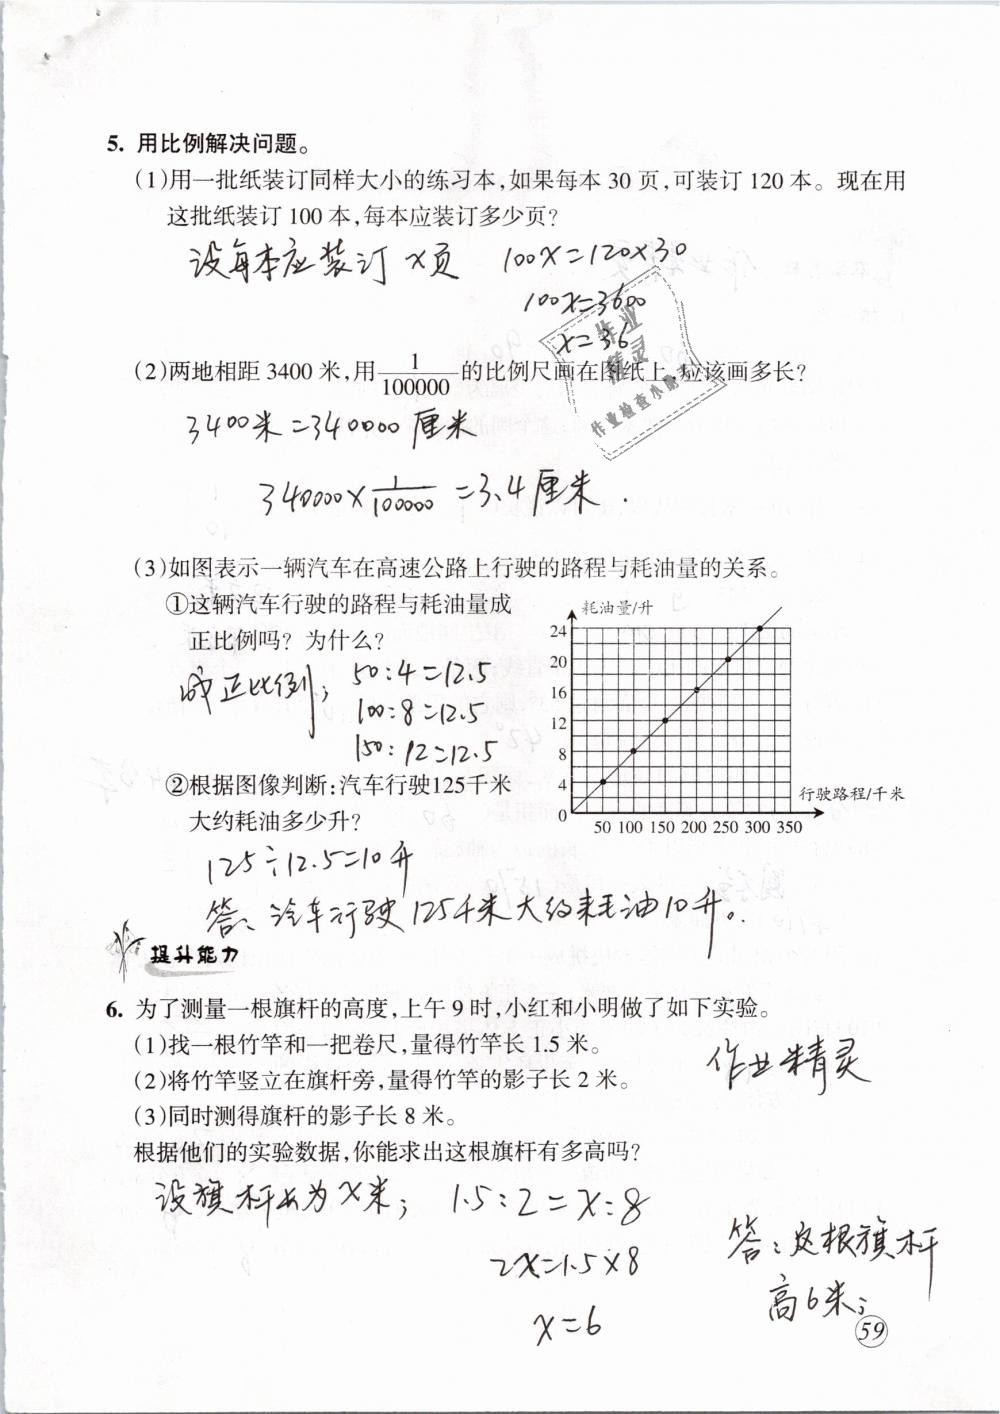 5. 用比例解决问题。
(1)用一批纸装订同样大小的练习本,如果每本 30 页,可装订 120 本。现在用
这批纸装订 100 本,每本应装订多少页?
设每本应装订 x页 100x=120×30
100x=3600
x=36
(2)两地相距 3400 米,用 1/100000 的比例尺画在图纸上,应该画多长?
3400米=340000厘米
340000×1/100000=3.4厘米.
(3)如图表示一辆汽车在高速公路上行驶的路程与耗油量的关系。
①这辆汽车行驶的路程与耗油量成
正比例吗? 为什么?
成正比例; 50:4=12.5
100:8=12.5
150:12=12.5
②根据图像判断:汽车行驶125千米
大约耗油多少升?
125÷12.5=10升
答: 汽车行驶125千米大约耗油10升。
耗油量/升
24
20
16
12
8
4
0
50 100 150 200 250 300 350
行驶路程/千米
作业
精灵
作业检查小助手
提升能力
6. 为了测量一根旗杆的高度,上午 9 时,小红和小明做了如下实验。
(1)找一根竹竿和一把卷尺,量得竹竿长 1.5 米。
(2)将竹竿竖立在旗杆旁,量得竹竿的影子长 2 米。
(3)同时测得旗杆的影子长 8 米。
根据他们的实验数据,你能求出这根旗杆有多高吗?
作业精灵
设旗杆长为x米; 1.5:2=x:8
2x=1.5×8
x=6
答:这根旗杆
高6米;
59